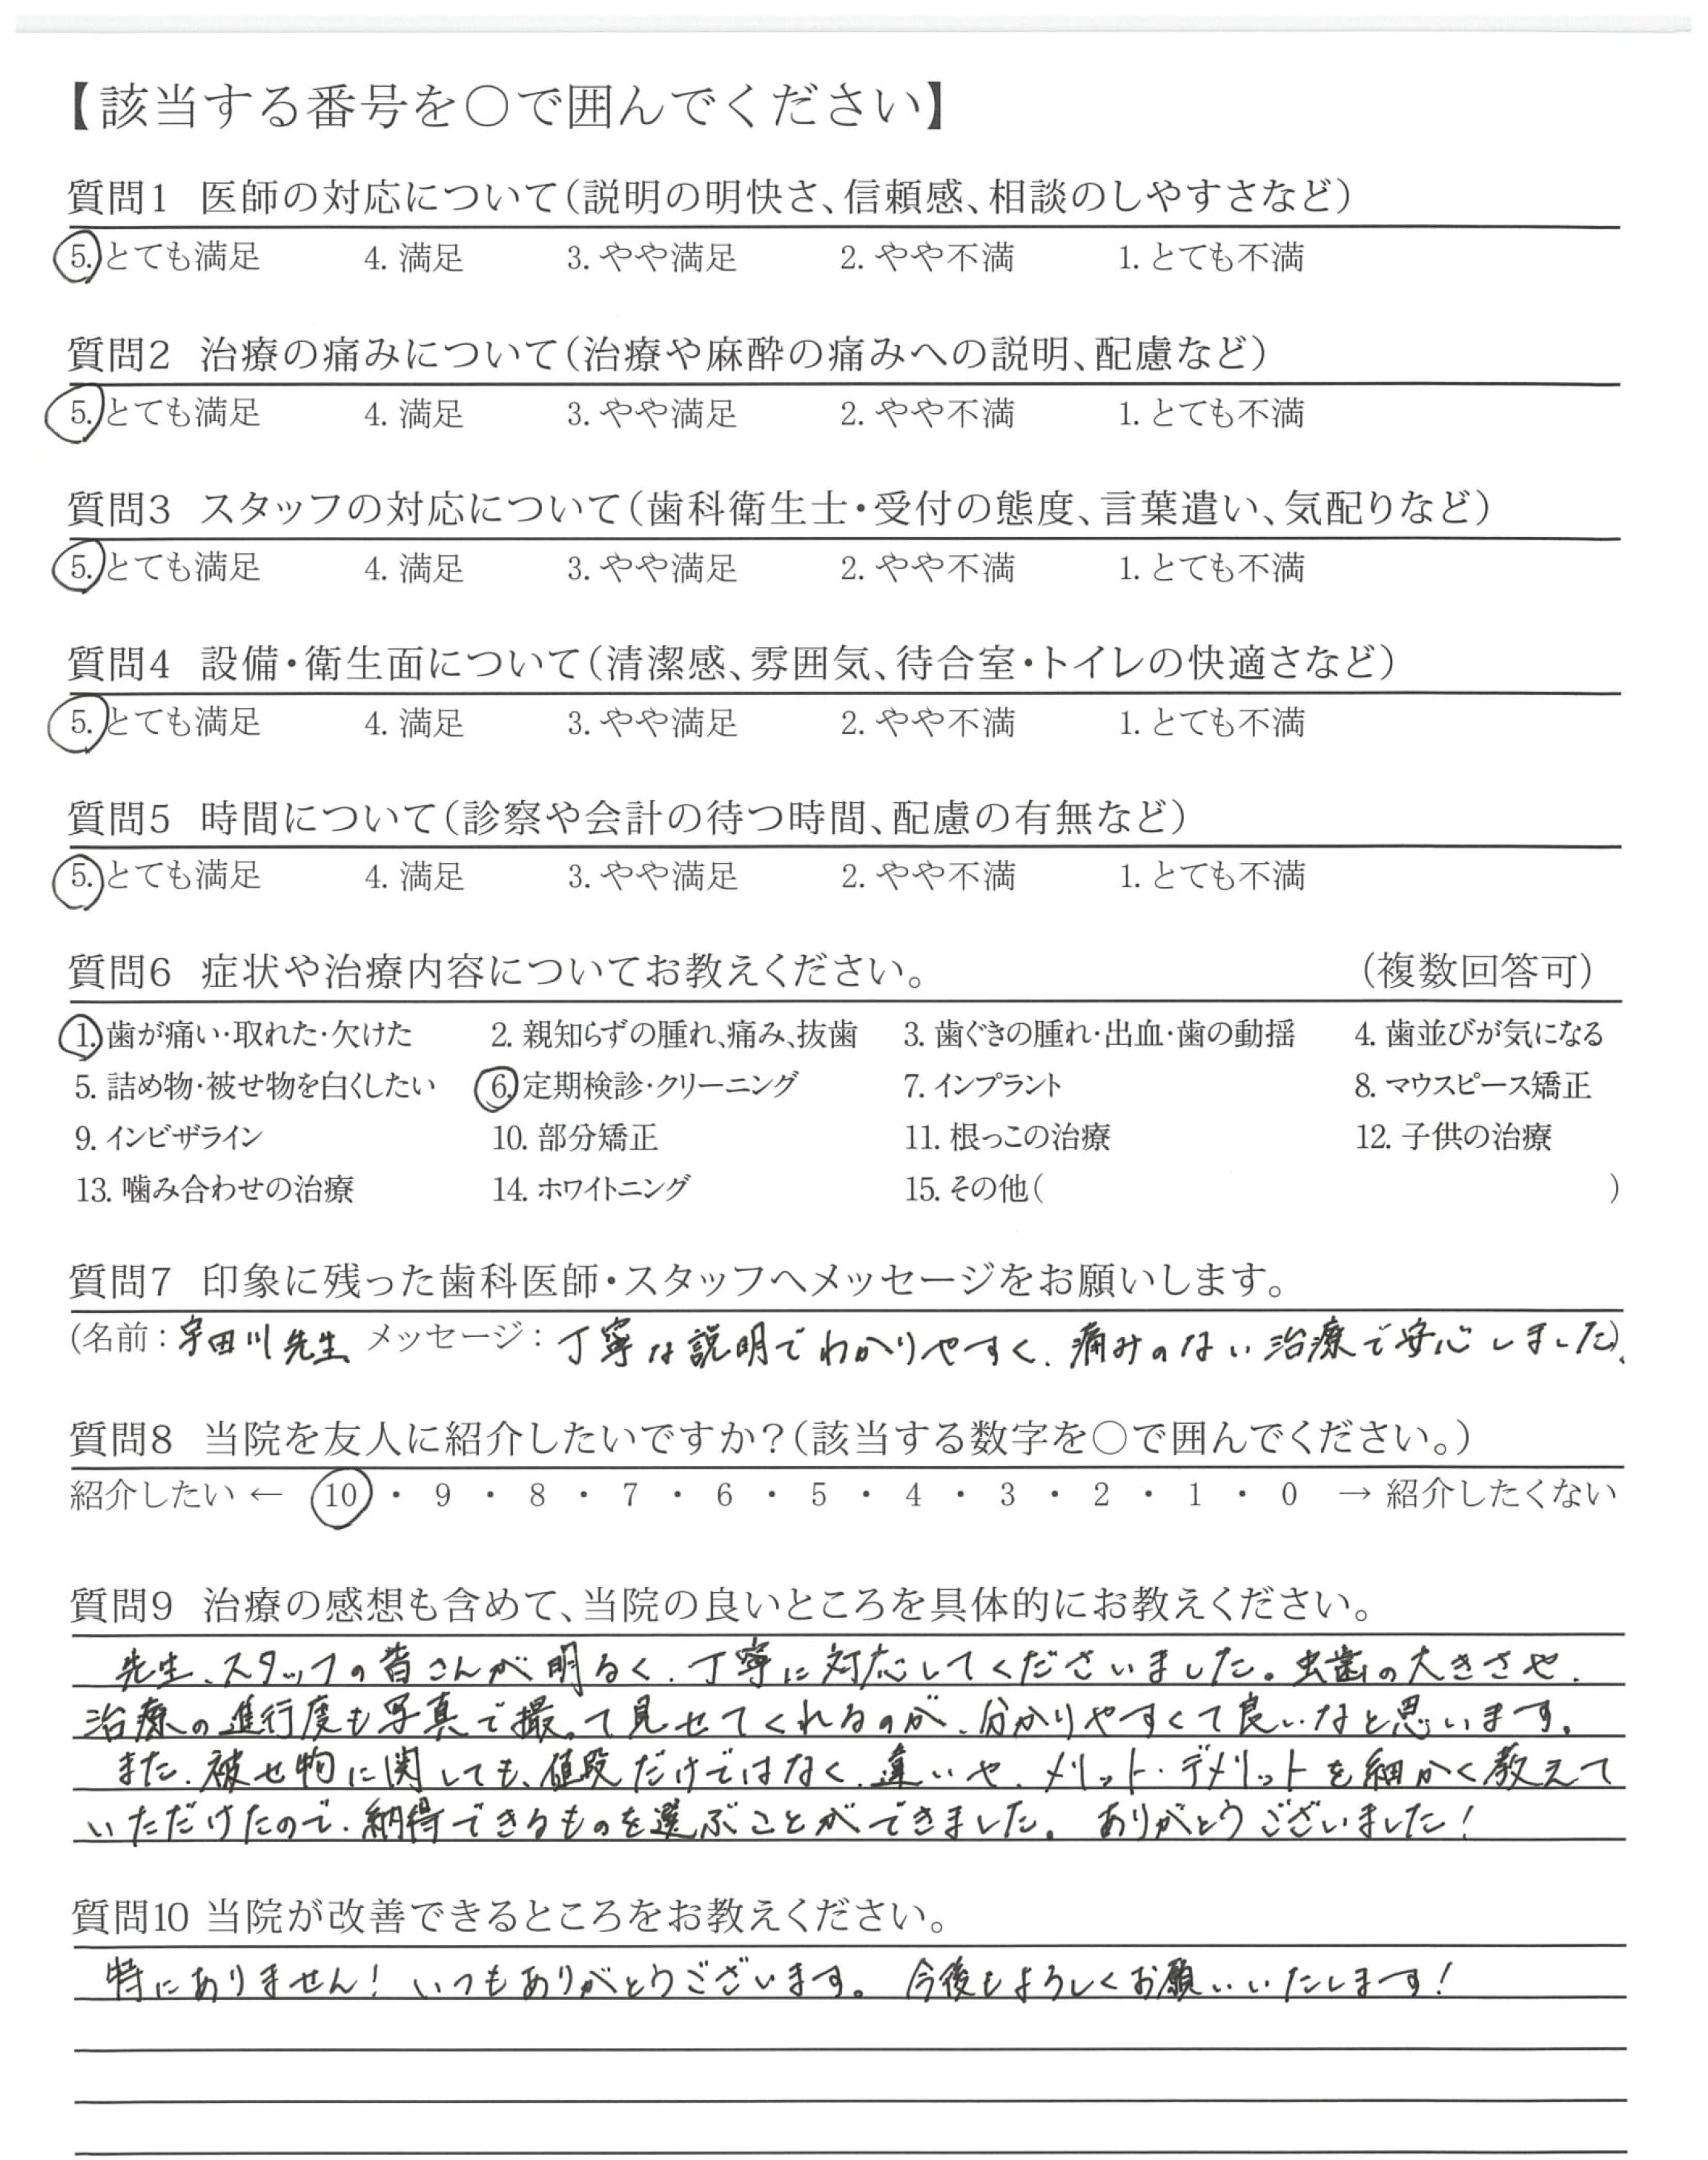 【該当する番号を○で囲んでください】
質問1 医師の対応について(説明の明快さ、信頼感、相談のしやすさなど)
5. とても満足 4. 満足 3. やや満足 2. やや不満 1. とても不満
質問2 治療の痛みについて(治療や麻酔の痛みへの説明、配慮など)
5. とても満足 4. 満足 3. やや満足 2. やや不満 1. とても不満
質問3 スタッフの対応について(歯科衛生士・受付の態度、言葉遣い、気配りなど)
5. とても満足 4. 満足 3. やや満足 2. やや不満 1. とても不満
質問4 設備・衛生面について(清潔感、雰囲気、待合室・トイレの快適さなど)
5. とても満足 4. 満足 3. やや満足 2. やや不満 1. とても不満
質問5 時間について(診察や会計の待つ時間、配慮の有無など)
5. とても満足 4. 満足 3. やや満足 2. やや不満 1. とても不満
質問6 症状や治療内容についてお教えください。 (複数回答可)
1. 歯が痛い・取れた・欠けた 2. 親知らずの腫れ、痛み、抜歯 3. 歯ぐきの腫れ・出血・歯の動揺 4. 歯並びが気になる
5. 詰め物・被せ物を白くしたい 6. 定期検診・クリーニング 7. インプラント 8. マウスピース矯正
9. インビザライン 10. 部分矯正 11. 根っこの治療 12. 子供の治療
13. 噛み合わせの治療 14. ホワイトニング 15. その他( )
質問7 印象に残った歯科医師・スタッフへメッセージをお願いします。
(名前:宇田川先生 メッセージ:丁寧な説明でわかりやすく、痛みのない治療で安心しました)、
質問8 当院を友人に紹介したいですか?(該当する数字を○で囲んでください。)
紹介したい ← 10 ・ 9 ・ 8 ・ 7 ・ 6 ・ 5 ・ 4 ・ 3 ・ 2 ・ 1 ・ 0 → 紹介したくない
質問9 治療の感想も含めて、当院の良いところを具体的にお教えください。
先生、スタッフの皆さんが明るく、丁寧に対応してくださいました。虫歯の大きさや、
治療の進行度も写真で撮って見せてくれるのが、分かりやすくて良いなと思います。
また、被せ物に関しても、値段だけではなく、違いや、メリット・デメリットを細かく教えて
いただけたので、納得できるものを選ぶことができました。ありがとうございました!
質問10 当院が改善できるところをお教えください。
特にありません! いつもありがとうございます。今後もよろしくお願いいたします!